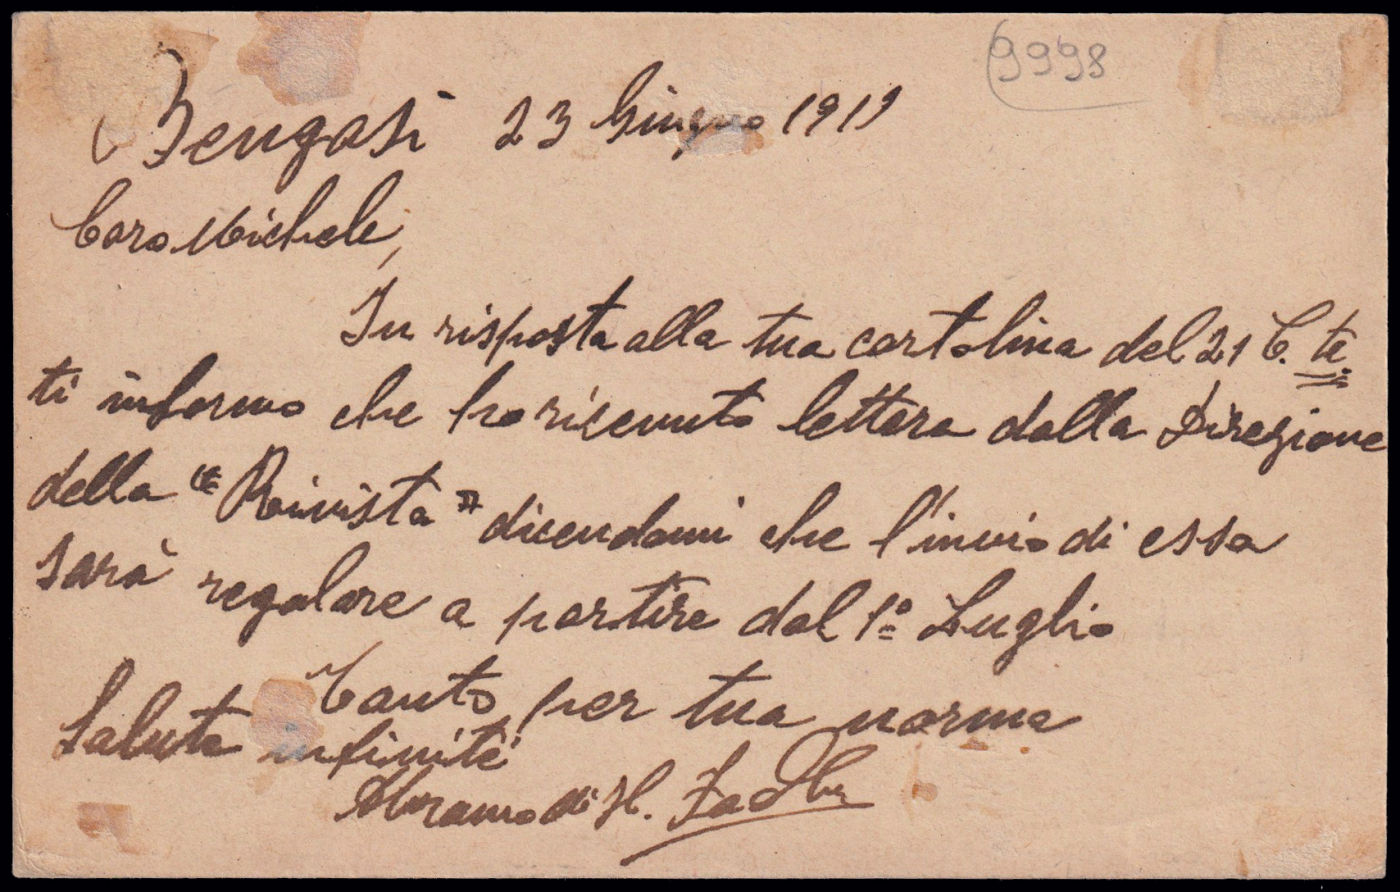 9998
Bengasi 23 Giugno 1919
Caro Michele,
In risposta alla tua cartolina del 21 C. te.
ti informo che ho ricevuto lettera dalla Direzione
della "Rivista" dicendomi che l'invio di essa
sarà regolare a partire dal 1º Luglio
Tanto per tua norma
Saluti infiniti
Abramo di H.